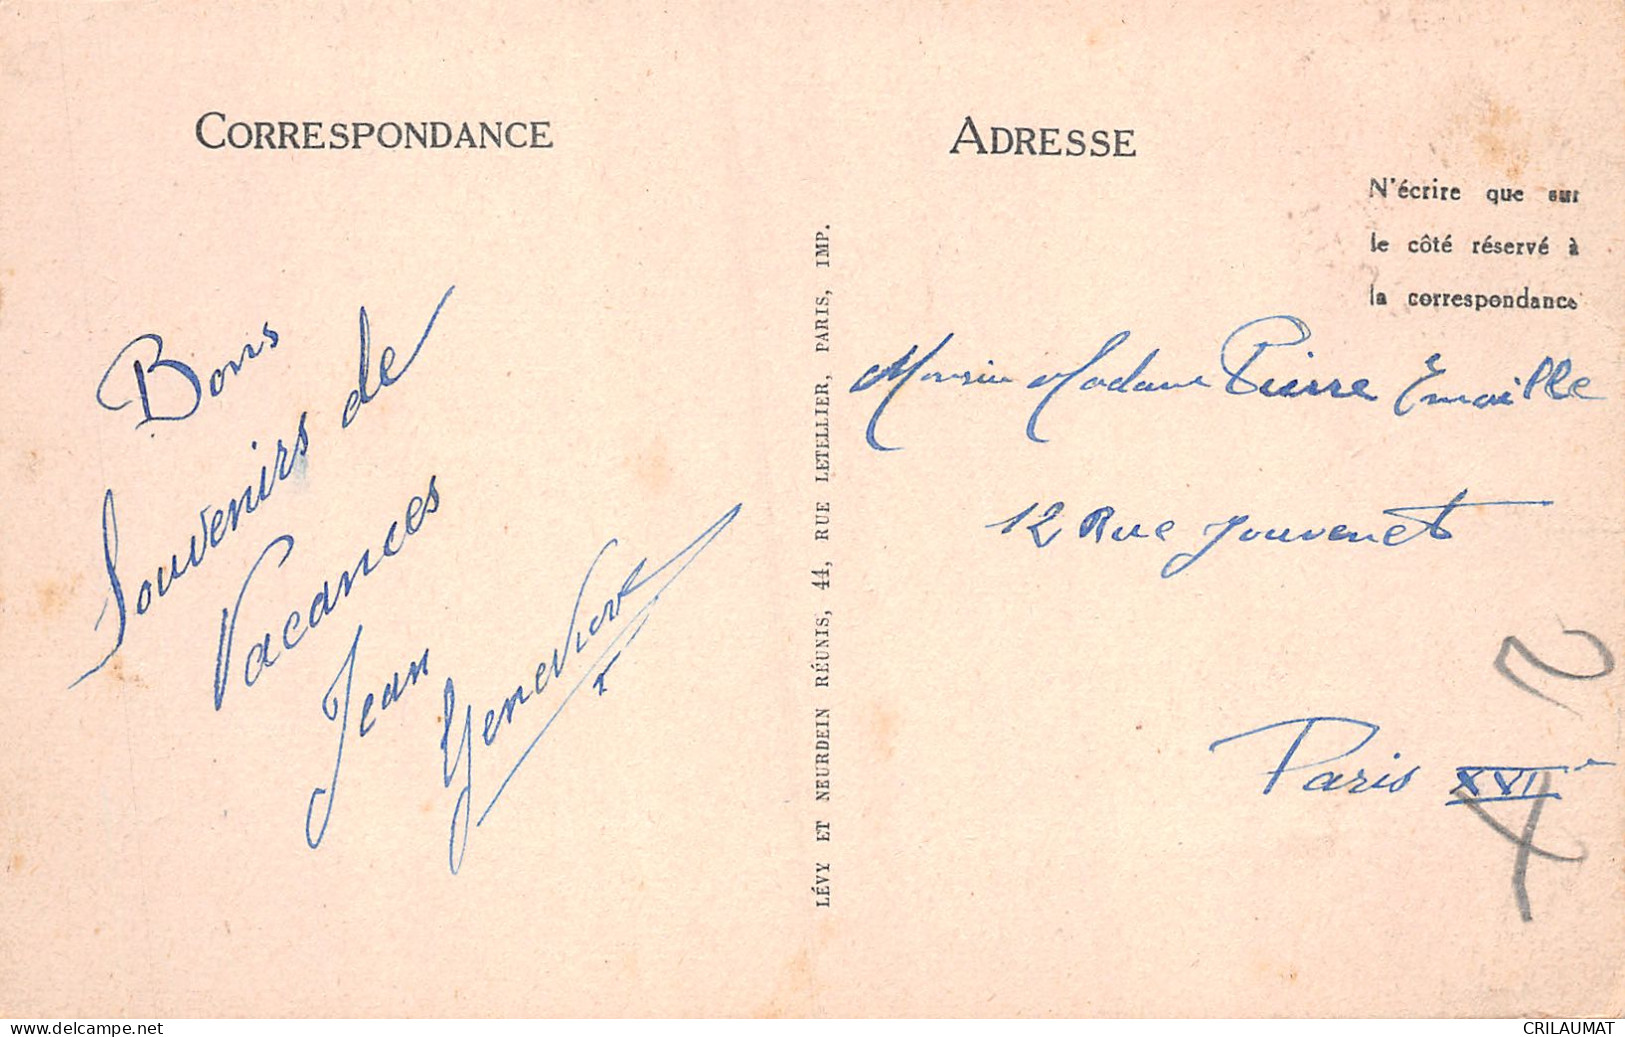 CORRESPONDANCE
Bons
Souvenirs de
Vacances
Jean
Geneviève
LÉVY ET NEURDEIN RÉUNIS, 44, RUE LETELLIER, PARIS, IMP.
ADRESSE
N'écrire que sur
le côté réservé à
la correspondance
Monsieur Madame Pierre Emaille
12 Rue Jouvenet
Paris XVIe
www.delcampe.net
CRILAUMAT